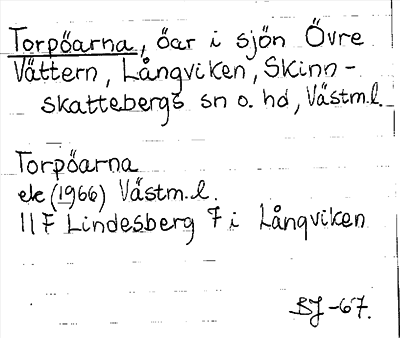 Torpöarna, öar i sjön Övre
Vättern, Långviken, Skinn-
skattebergs sn o. hd, Västm.l.
Torpöarna
ek (1966) Västm.l.
11F Lindesberg 7i Långviken
BJ-67.